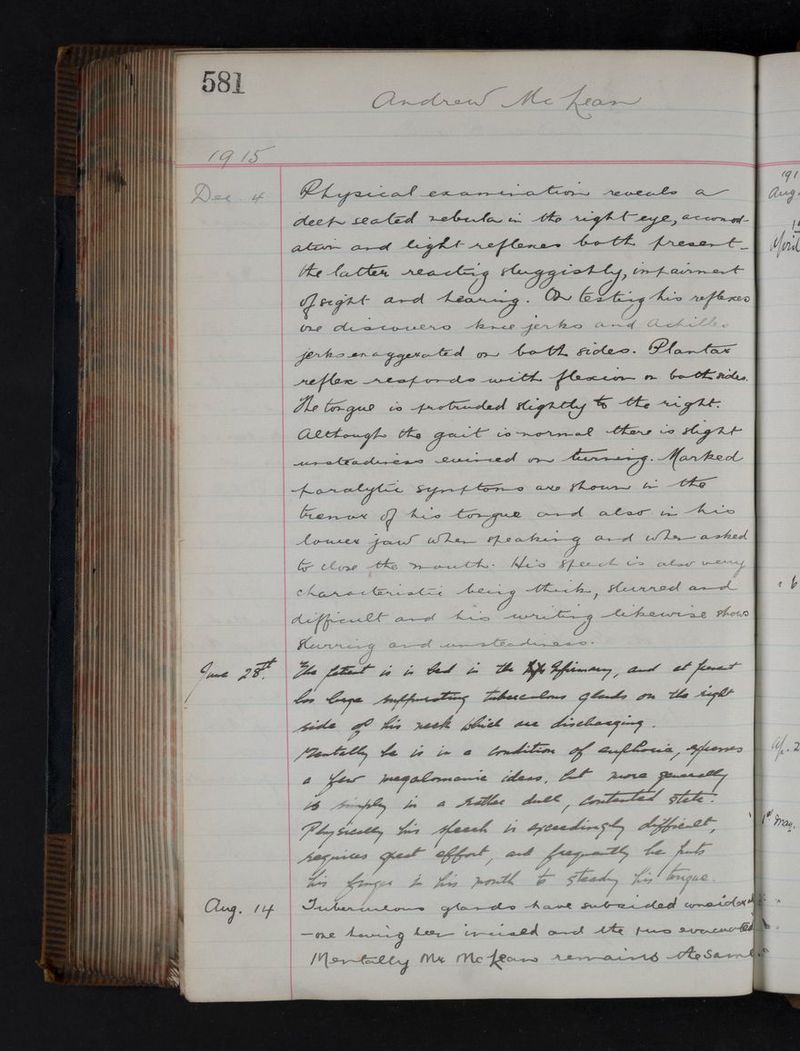 581
Andrew McLean
1915
Dec. 4 Physical examination reveals a
deep seated nebula in the right eye, accomod-
ation and light reflexes both present -
the latter reacting sluggishly, impairment
of sight and hearing. On testing his reflexes
one discovers knee jerks and Achilles
jerks exaggerated on both sides. Plantar
reflex responds with flexion on both sides.
The tongue is protruded slightly to the right.
Although the gait is normal there is slight
unsteadiness evinced on turning. Marked
paralytic symptoms are shown in the
tremor of his tongue and also in his
lower jaw when speaking and when asked
to close the mouth. His speech is also very
characteristic being thick, slurred and
difficult and his writing likewise shows
slurring and unsteadiness.
June 28th. The patient is in bed in the Infirmary, and at present
has large suppurating tuberculous glands on the right
side of his neck which are discharging.
Mentally he is in a condition of euphoria, expresses
a few megalomanic ideas, but more generally
is simply in a rather dull, contented state.
Physically his speech is exceedingly difficult,
requires great effort, and frequently he puts
his finger in his mouth to steady his tongue.
Aug. 14 Tuberculous glands have subsided
- one having been incised and the pus evacuated
Mentally Mr McLean remains the same
191
Aug.
April
Ap. 2
1st May.